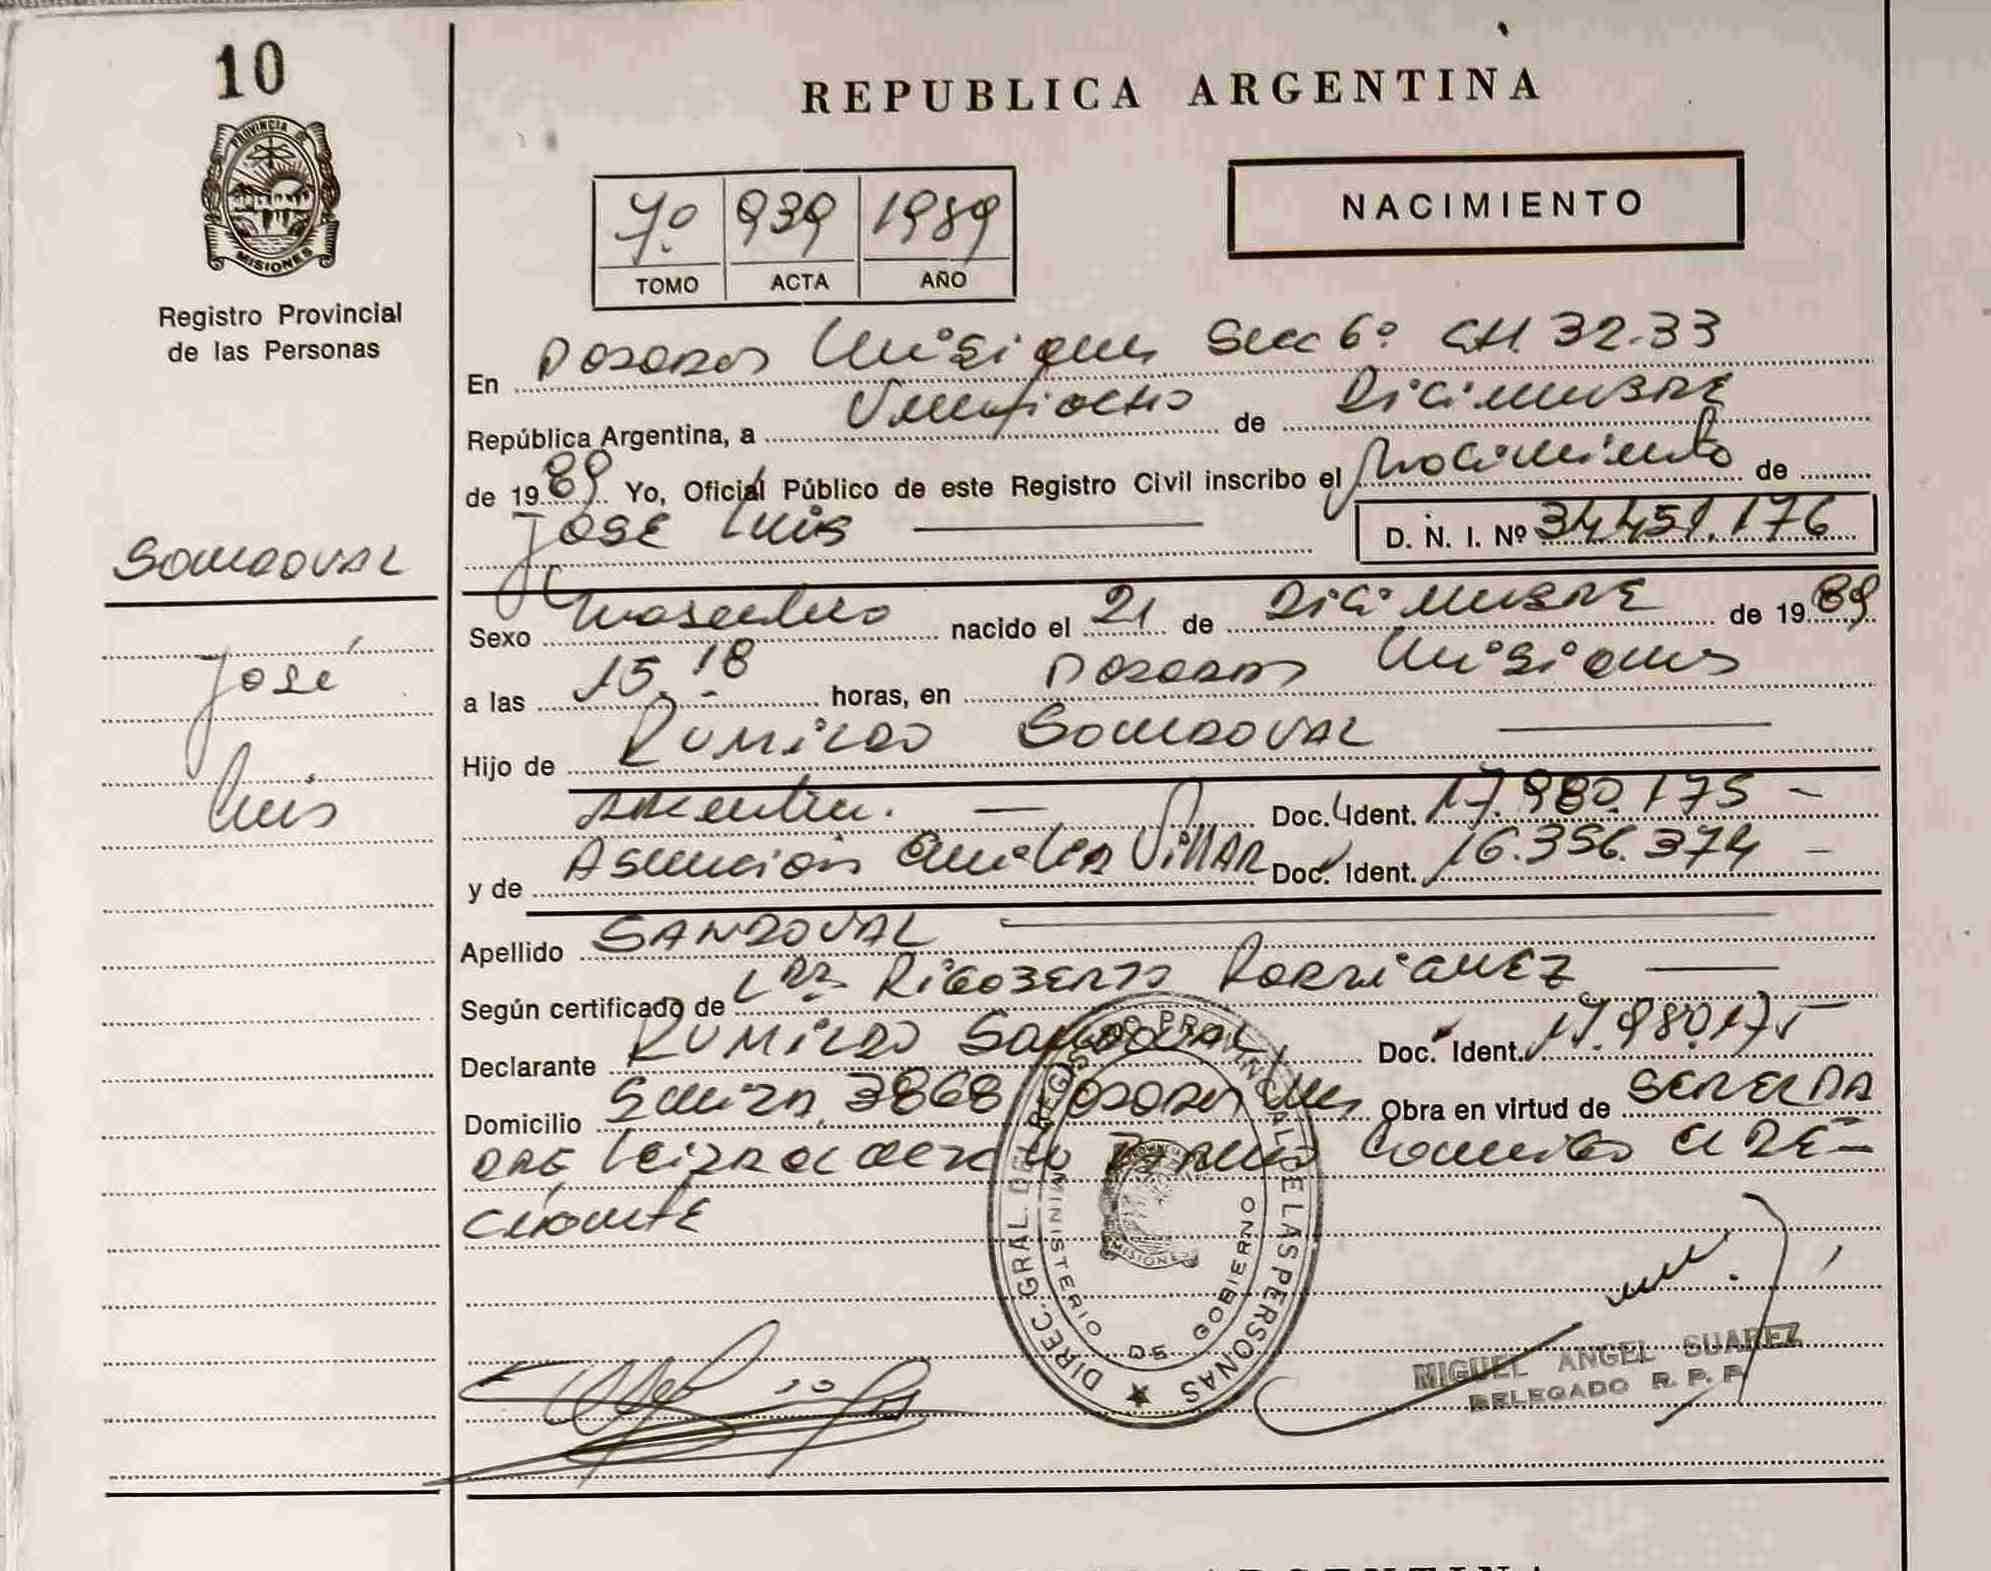 10
PROVINCIA DE
MISIONES
Registro Provincial
de las Personas
SANDOVAL
José
Luis
REPUBLICA ARGENTINA
7º 939 1989
TOMO ACTA AÑO
NACIMIENTO
En Posadas Misiones Secc 6º CH. 32-33
República Argentina, a Veintiocho de Diciembre
de 1989 Yo, Oficial Público de este Registro Civil inscribo el Nacimiento de
JOSE Luis D. N. I. Nº 34.451.176
Sexo Masculino nacido el 21 de Diciembre de 1989
a las 15.18 horas, en Posadas Misiones
Hijo de Rumildo SANDOVAL
Argentin. Doc. Ident. 17.980.175 -
y de Asunción Amelia Villar Doc. Ident. 16.356.374 -
Apellido SANDOVAL
Según certificado de Rigoberto Rodriguez
Declarante Rumildo Sandoval Doc. Ident. 17.980.175
Domicilio 3868 Posadas Mnes Obra en virtud de
DIREC. GRAL. DEL REGISTRO PROVINCIAL DE LAS PERSONAS
MINISTERIO DE GOBIERNO
MISIONES
MIGUEL ANGEL SUAREZ
DELEGADO R. P. P.